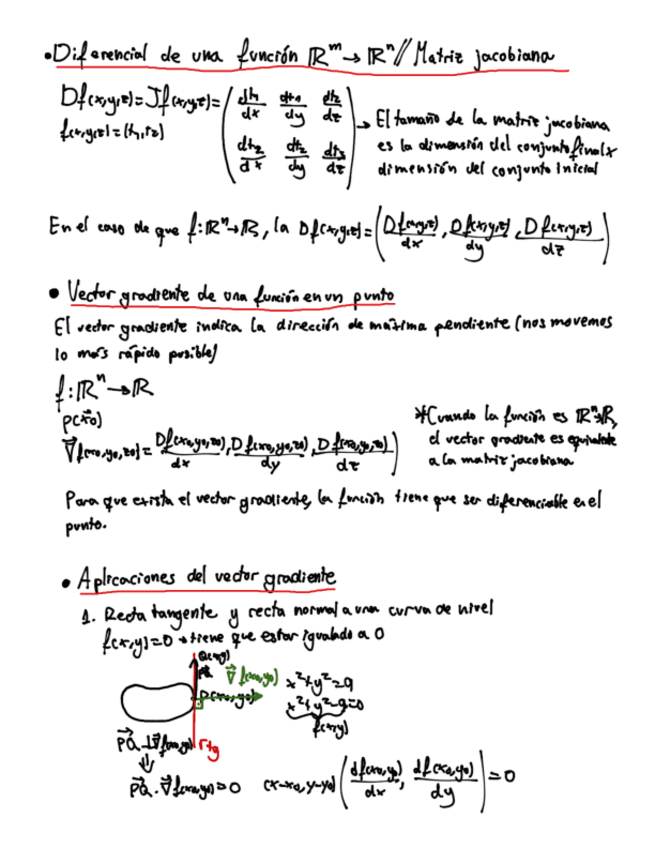 • Diferencial de una función ℝᵐ → ℝⁿ // Matriz jacobiana
Df(x,y,z) = Jf(x,y,z) = ( df₁/dx df₁/dy df₂/dz
f(x,y,z) = (f₁, f₂)
df₂/dx df₂/dy df₃/dz )
→ El tamaño de la matriz jacobiana
es la dimensión del conjunto final x
dimensión del conjunto inicial
En el caso de que f: ℝⁿ → ℝ, la Df(x,y,z) = ( Df(x,y,z)/dx , Df(x,y,z)/dy , Df(x,y,z)/dz )
• Vector gradiente de una función en un punto
El vector gradiente indica la dirección de máxima pendiente (nos movemos
lo más rápido posible)
f: ℝⁿ → ℝ
P(x⃗₀)
∇⃗f(x₀,y₀,z₀) = Df(x₀,y₀,z₀)/dx , Df(x₀,y₀,z₀)/dy , Df(x₀,y₀,z₀)/dz )
* Cuando la función es ℝⁿ→ℝ,
el vector gradiente es equivalente
a la matriz jacobiana
Para que exista el vector gradiente, la función tiene que ser diferenciable en el
punto.
• Aplicaciones del vector gradiente
1. Recta tangente y recta normal a una curva de nivel
f(x,y)=0 → tiene que estar igualado a 0
Q(x,y)
PQ⃗
∇⃗f(x₀,y₀)
P(x₀,y₀)
x²+y²=9
x²+y²-9=0
f(x,y)
rtg
PQ⃗ ⊥ ∇⃗f(x₀,y₀)
⇓
PQ⃗ · ∇⃗f(x₀,y₀)=0 (x-x₀, y-y₀) ( df(x₀,y₀)/dx , df(x₀,y₀)/dy ) = 0